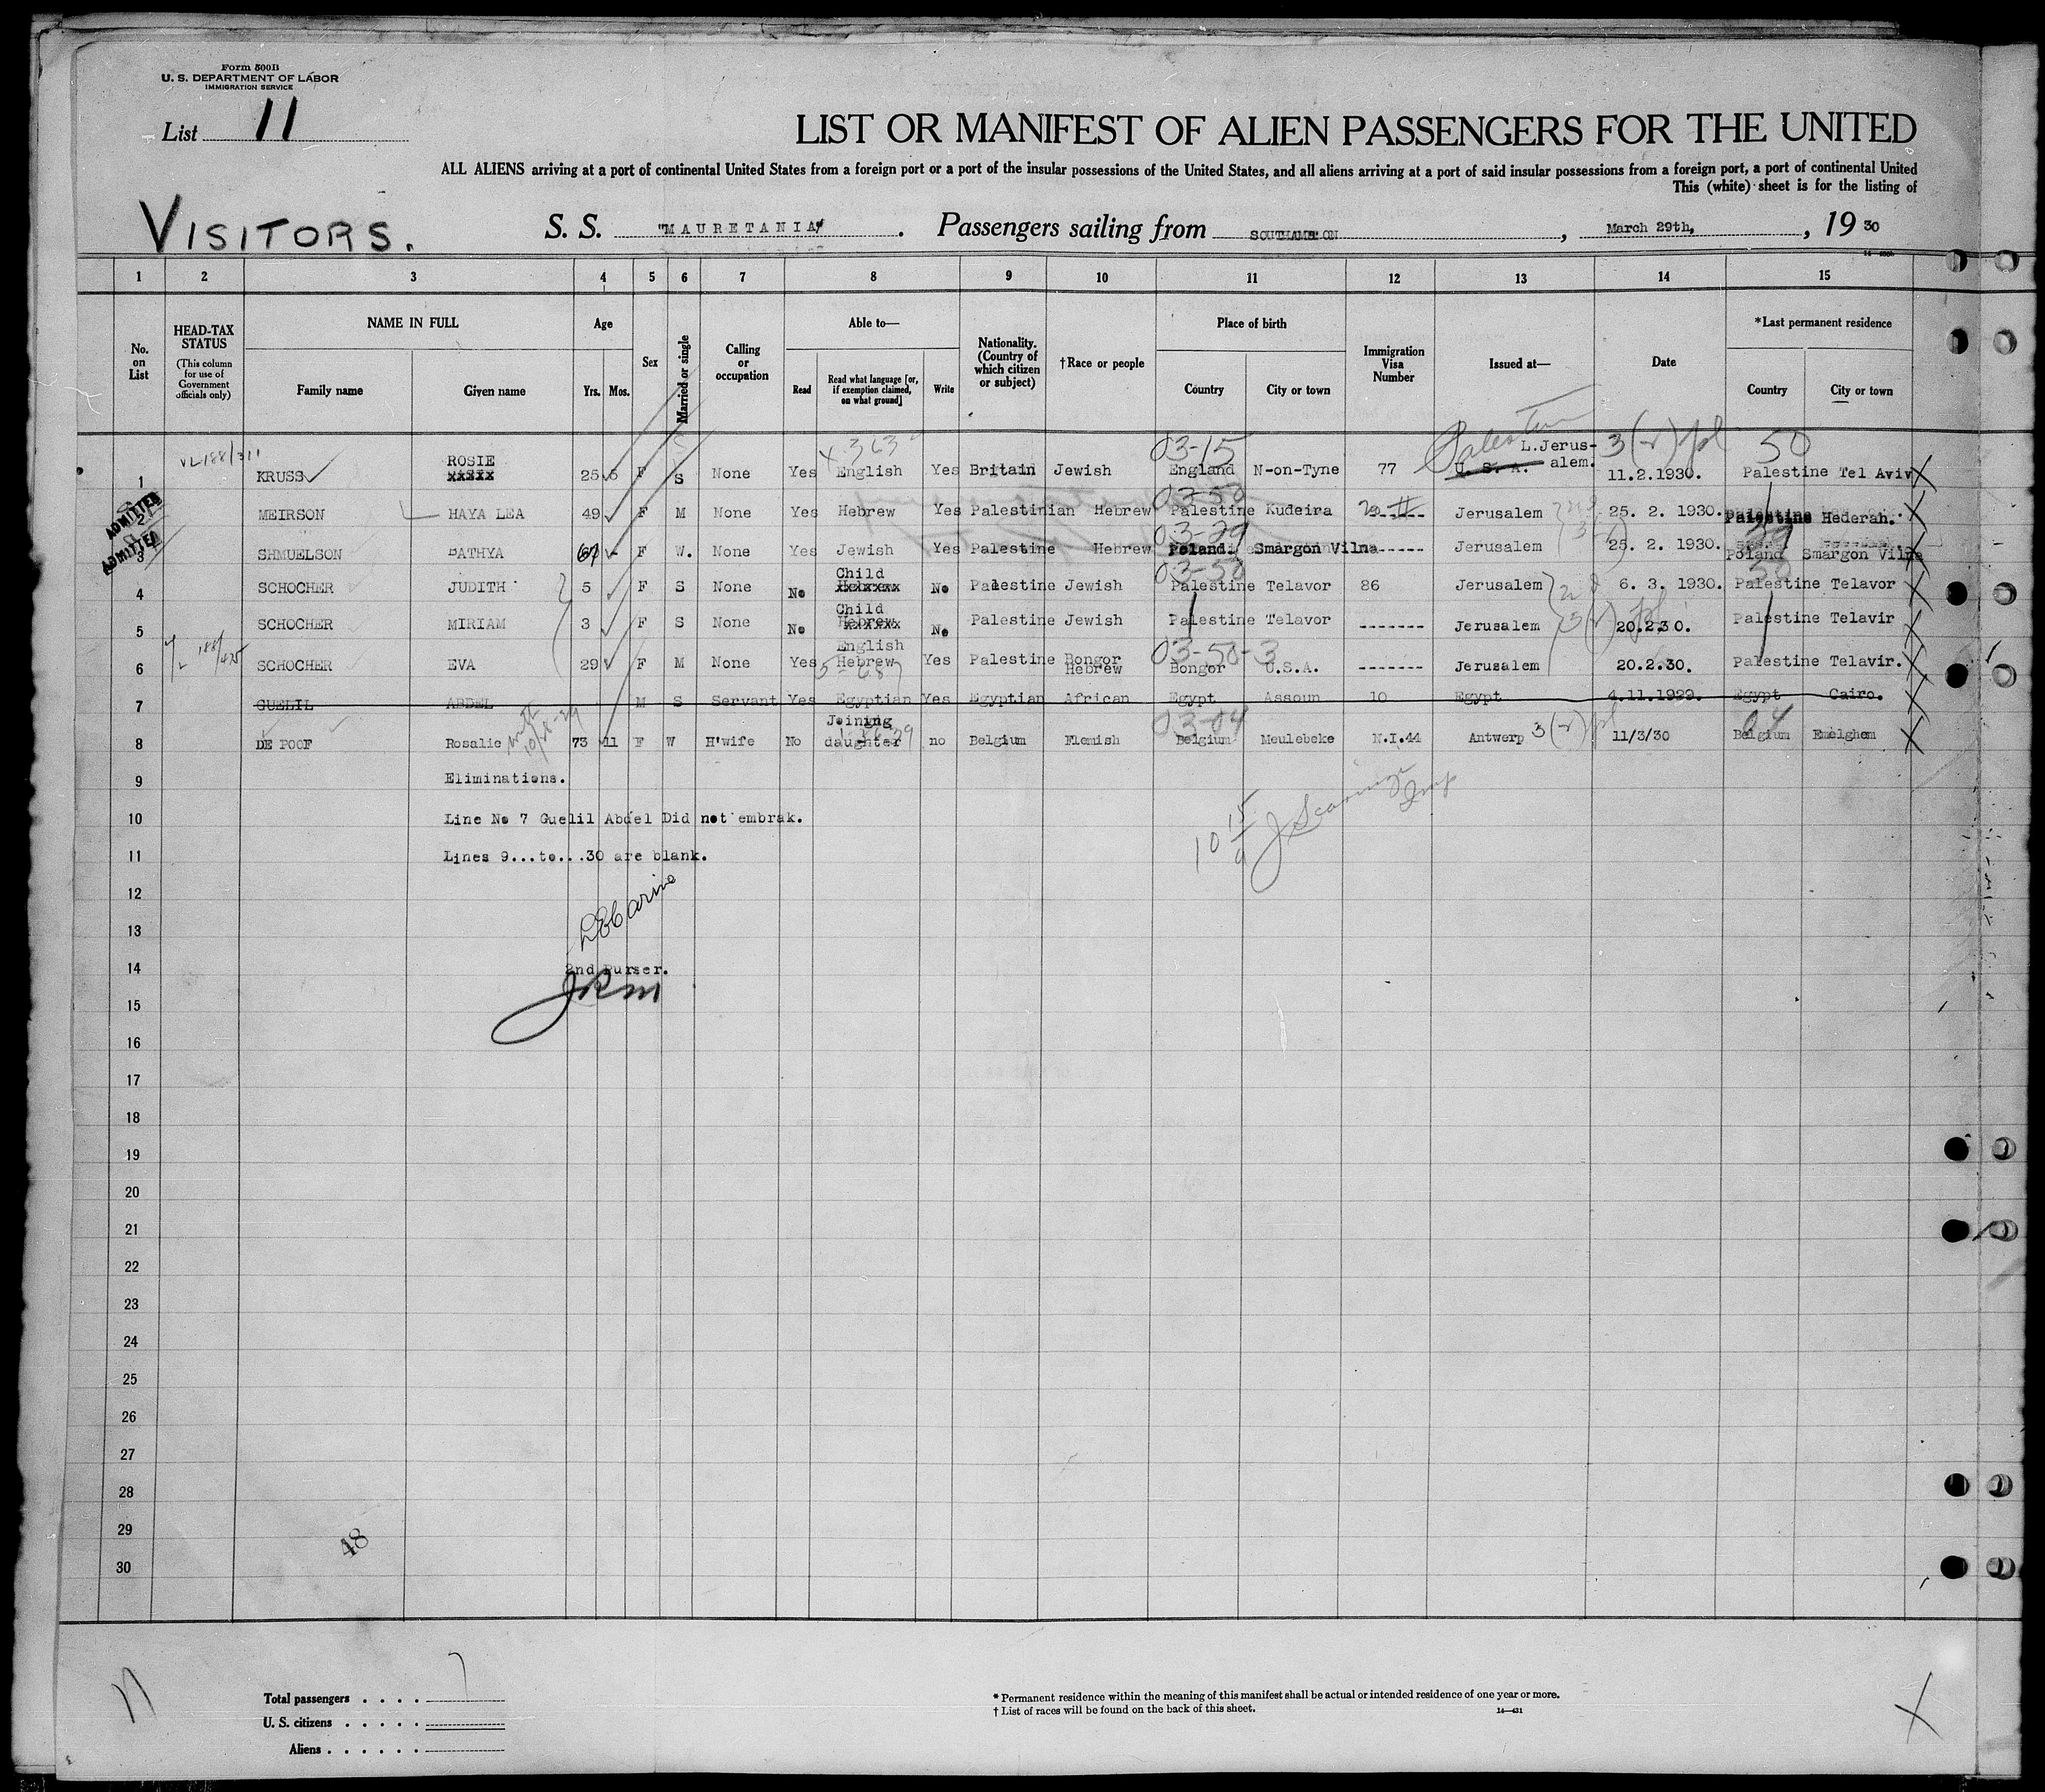 Form 500B
U. S. DEPARTMENT OF LABOR
IMMIGRATION SERVICE
List 11
LIST OR MANIFEST OF ALIEN PASSENGERS FOR THE UNITED
ALL ALIENS arriving at a port of continental United States from a foreign port or a port of the insular possessions of the United States, and all aliens arriving at a port of said insular possessions from a foreign port, a port of continental United
This (white) sheet is for the listing of
VISITORS.
S. S. "MAURETANIA". Passengers sailing from SOUTHAMPTON, March 29th, 1930
1 2 3 4 5 6 7 8 9 10 11 12 13 14 15
No. on List
HEAD-TAX STATUS (This column for use of Government officials only)
NAME IN FULL Family name Given name
Age Yrs. Mos.
Sex
Married or single
Calling or occupation
Able to— Read Read what language [or, if exemption claimed, on what ground] Write
Nationality. (Country of which citizen or subject)
†Race or people
Place of birth Country City or town
Immigration Visa Number
Issued at—
Date
*Last permanent residence Country City or town
VL188/311 4-363 03-15 Palestine 3(r) 50
1 KRUSS ROSIE 25 5 F S None Yes English Yes Britain Jewish England N-on-Tyne 77 U. S. A. L.Jerus-alem. 11.2.1930. Palestine Tel Aviv X
ADMITTED 03-50
2 MEIRSON HAYA LEA 49 F M None Yes Hebrew Yes Palestinian Hebrew Palestine Kudeira Jerusalem 25. 2. 1930. Palestine Hederah. X
ADMITTED 03-29
3 SHMUELSON BATHYA 67 F W. None Yes Jewish Yes Palestine Hebrew Poland. Smargon Vilna ------ Jerusalem 25. 2. 1930. Poland Smargon Vilna
03-50 50
4 SCHOCHER JUDITH 5 F S None No Child No Palestine Jewish Palestine Telavor 86 Jerusalem 6. 3. 1930. Palestine Telavor X
5 SCHOCHER MIRIAM 3 F S None No Child Hebrew No Palestine Jewish Palestine Telavor ------- Jerusalem 3(r) 20.2.30. Palestine Telavir X
188/475 5-687 03-50-3
6 SCHOCHER EVA 29 F M None Yes English Hebrew Yes Palestine Bongor Hebrew Bongor U.S.A. ------- Jerusalem 20.2.30. Palestine Telavir. X
7 GUELIL ABDEL M S Servant Yes Egyptian Yes Egyptian African Egypt Assoun 10 Egypt 4.11.1929. Egypt Cairo. X
03-04 3(r) 04
8 DE POOF Rosalie 73 11 F W H'wife No Joining daughter no Belgium Flemish Belgium Meulebeke N.I.44 Antwerp 11/3/30 Belgium Emelghem X
9 Eliminations.
10 Line No 7 Guelil Abdel Did not embrak.
11 Lines 9...to...30 are blank.
12
13
14 2nd Purser.
15
16
17
18
19
20
21
22
23
24
25
26
27
28
29
48
30
Total passengers . . . . 7
U. S. citizens . . . . .
Aliens . . . . . .
* Permanent residence within the meaning of this manifest shall be actual or intended residence of one year or more.
† List of races will be found on the back of this sheet.
14—431
X